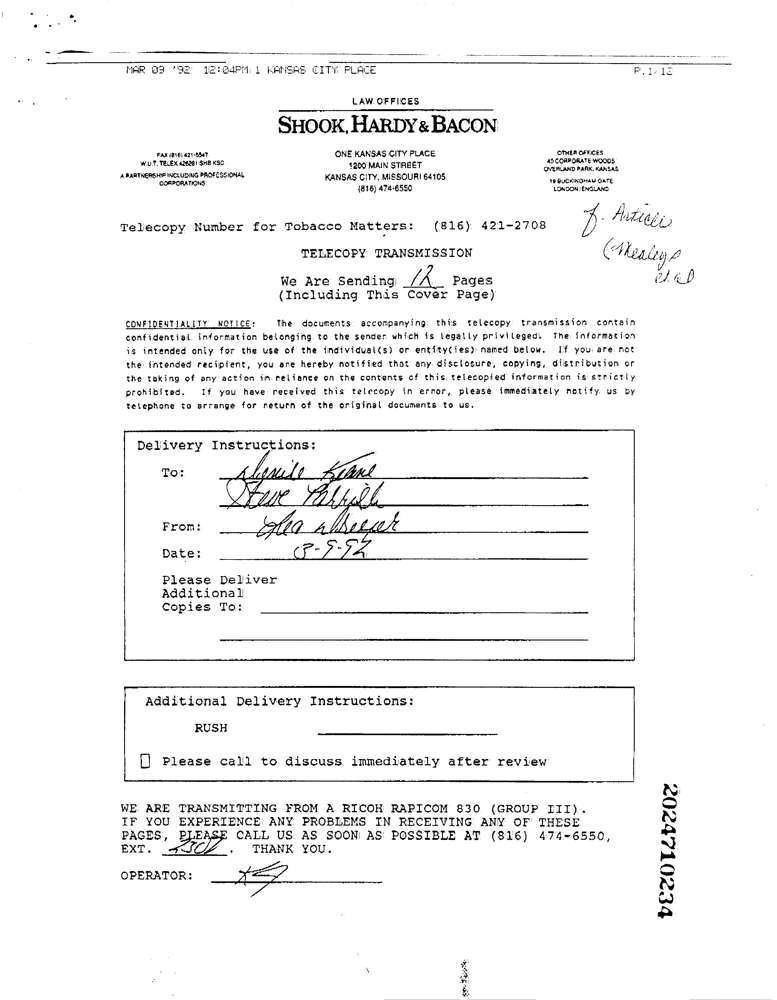 MAR 09 '92 12:04PM 1 KANSAS CITY PLACE P.1/12
LAW OFFICES
SHOOK, HARDY & BACON
FAX (816) 421-5547
W.U.T. TELEX 426281 SHB KSC
A PARTNERSHIP INCLUDING PROFESSIONAL
CORPORATIONS
ONE KANSAS CITY PLACE
1200 MAIN STREET
KANSAS CITY, MISSOURI 64105
(816) 474-6550
OTHER OFFICES
45 CORPORATE WOODS
OVERLAND PARK, KANSAS
19 BUCKINGHAM GATE
LONDON, ENGLAND
Telecopy Number for Tobacco Matters: (816) 421-2708
f. Articles
(Mealeys
et al
TELECOPY TRANSMISSION
We Are Sending 12 Pages
(Including This Cover Page)
CONFIDENTIALITY NOTICE: The documents accompanying this telecopy transmission contain
confidential information belonging to the sender which is legally privileged. The information
is intended only for the use of the individual(s) or entity(ies) named below. If you are not
the intended recipient, you are hereby notified that any disclosure, copying, distribution or
the taking of any action in reliance on the contents of this telecopied information is strictly
prohibited. If you have received this telecopy in error, please immediately notify us by
telephone to arrange for return of the original documents to us.
Delivery Instructions:
To: Keane
Steve Parrish
From:
Date: 3-9-92
Please Deliver
Additional
Copies To:
Additional Delivery Instructions:
RUSH
Please call to discuss immediately after review
WE ARE TRANSMITTING FROM A RICOH RAPICOM 830 (GROUP III).
IF YOU EXPERIENCE ANY PROBLEMS IN RECEIVING ANY OF THESE
PAGES, PLEASE CALL US AS SOON AS POSSIBLE AT (816) 474-6550,
EXT. . THANK YOU.
OPERATOR:
2024710234